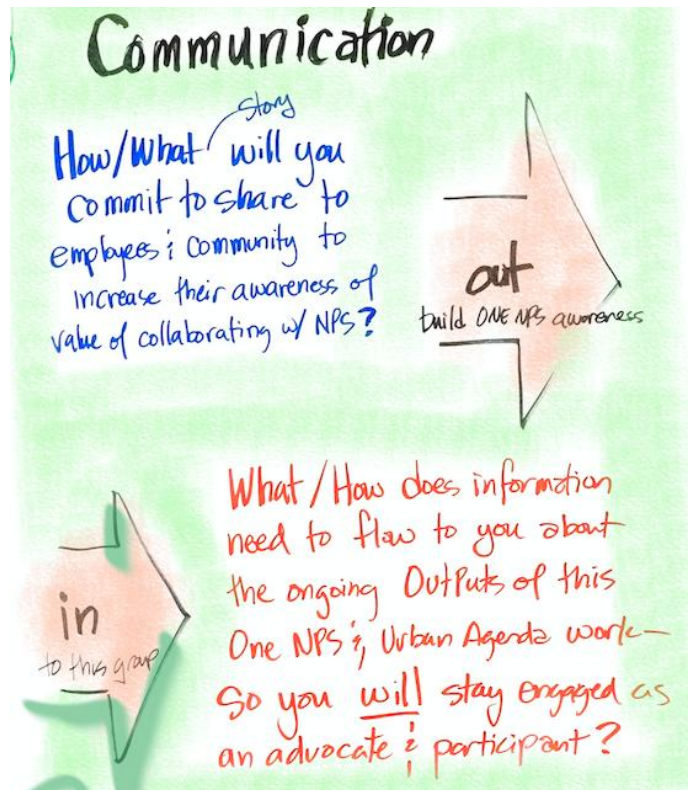 Communication
story
How/What will you
commit to share to
employees & community to
increase their awareness of
value of collaborating w/ NPS?
out
build ONE NPS awareness
What/How does information
need to flow to you about
the ongoing OutPuts of this
One NPS &, Urban Agenda work—
So you will stay engaged as
an advocate & participant?
in
to this group